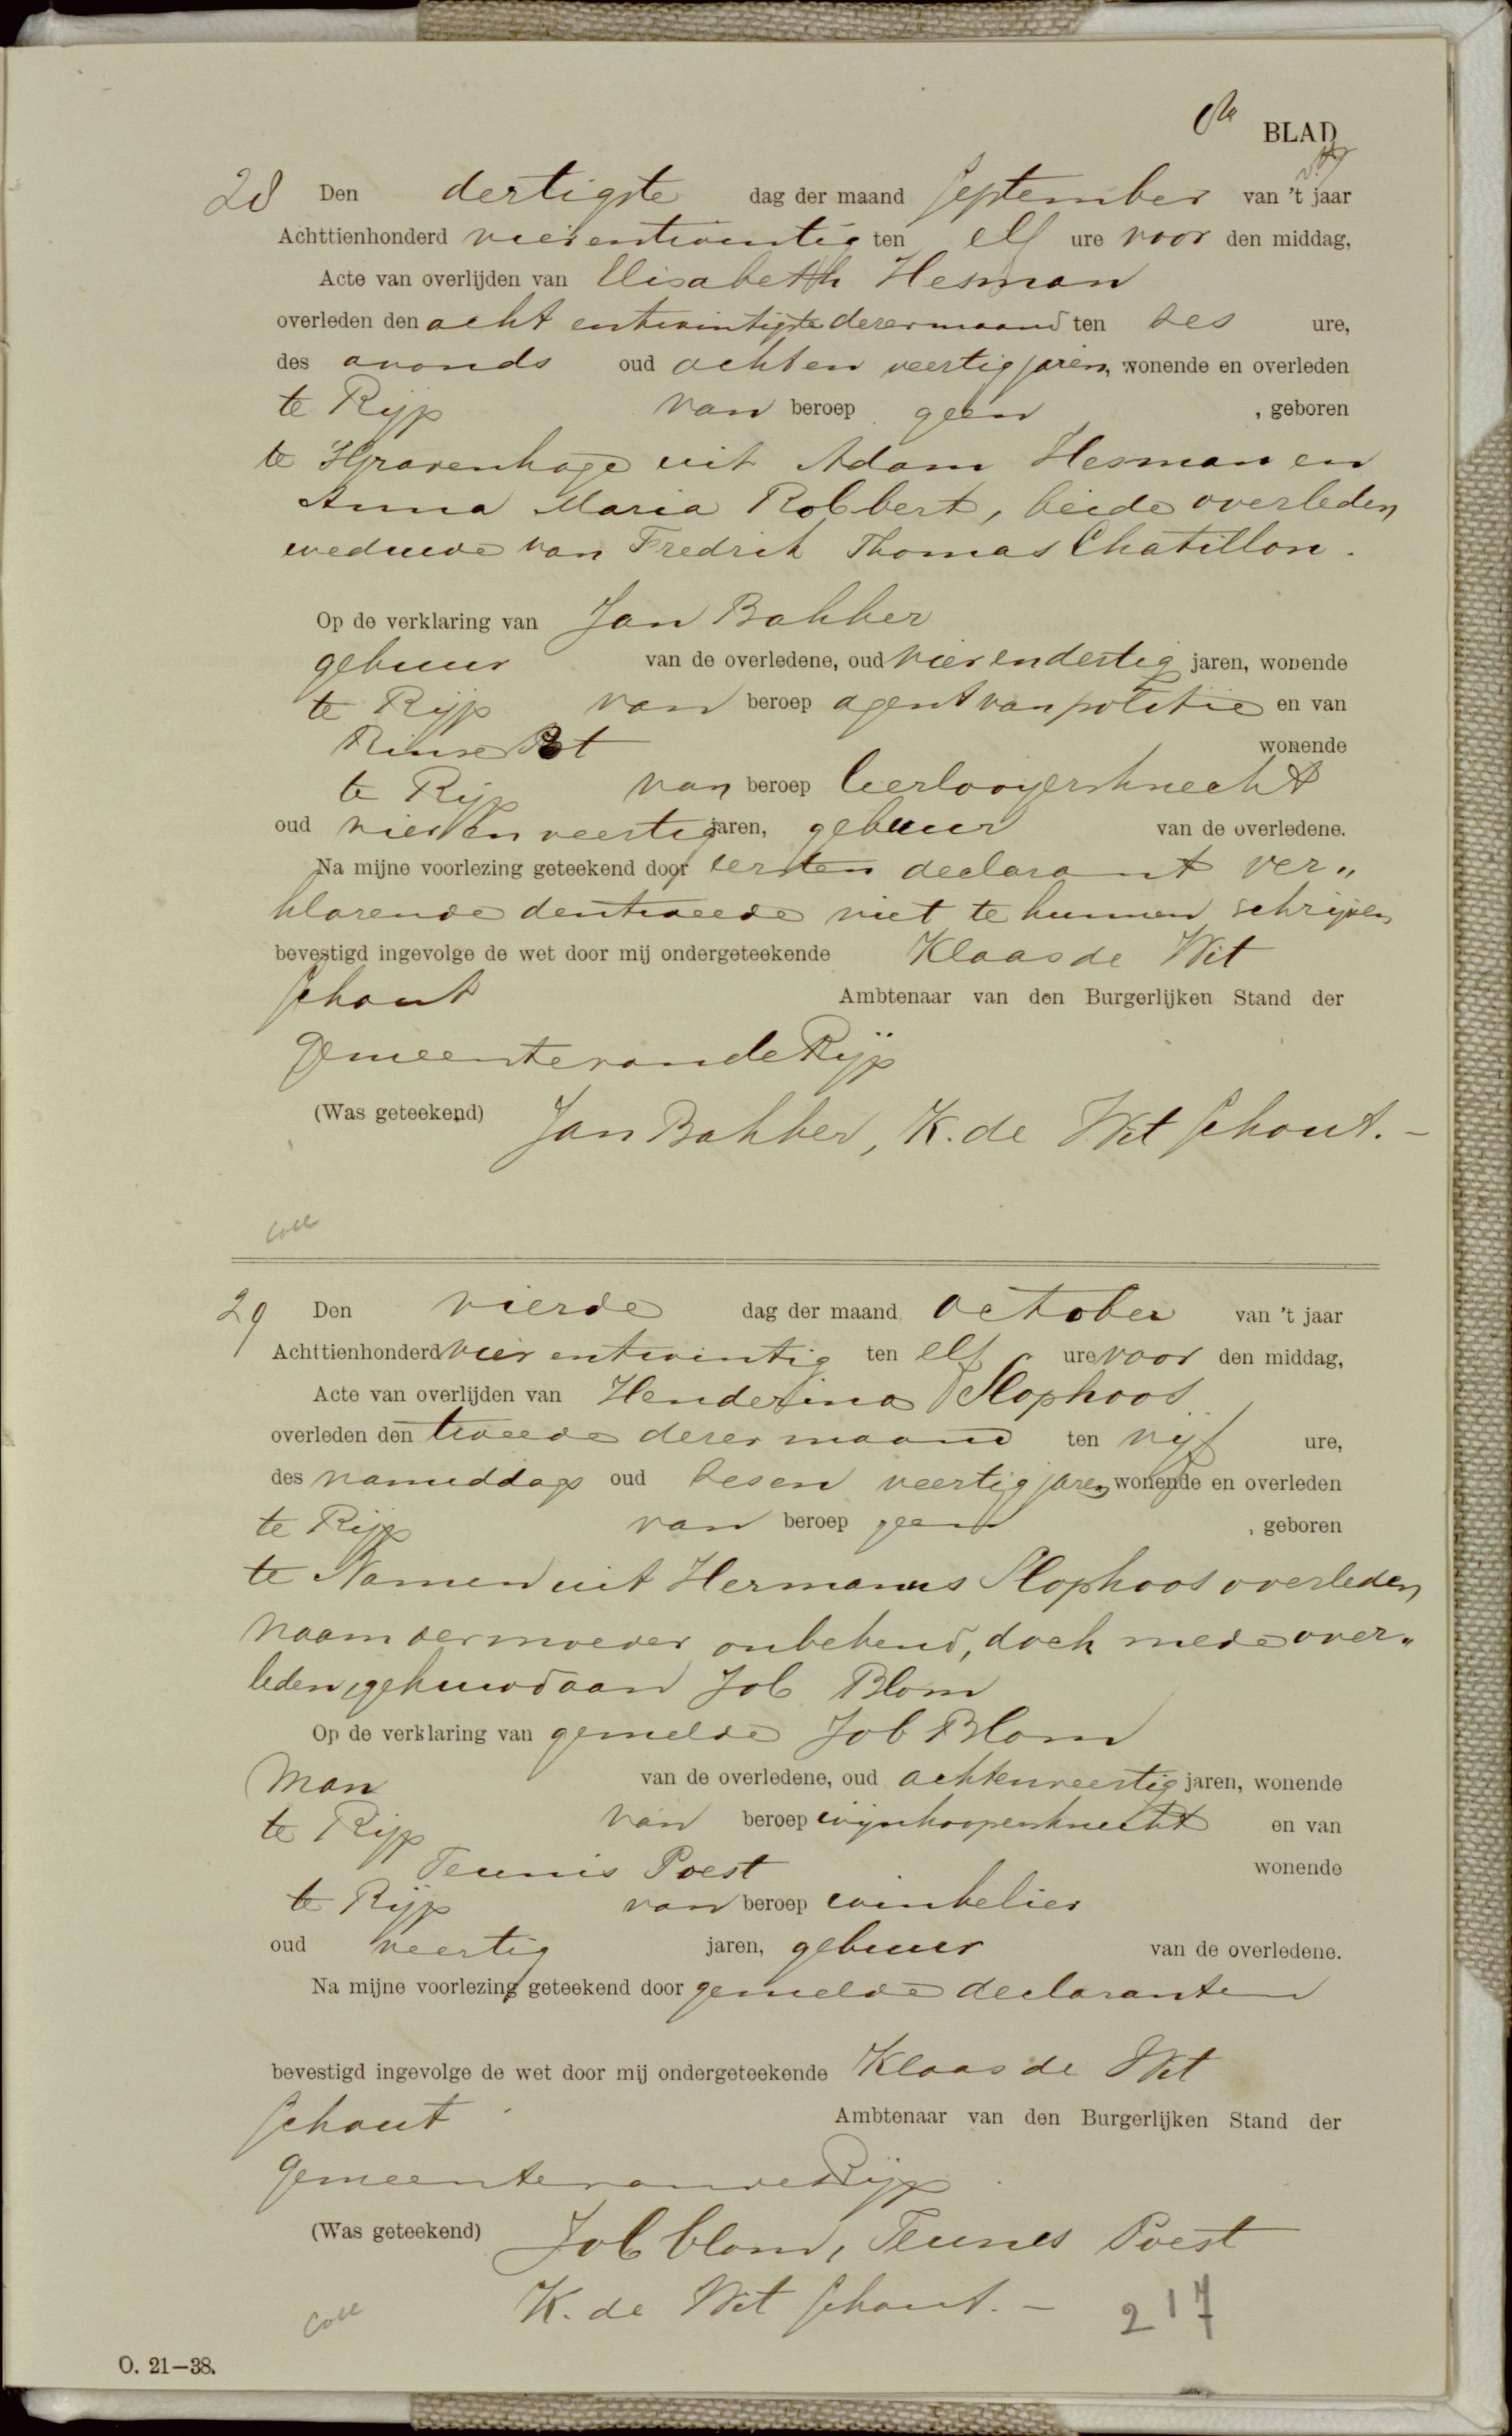 6de BLAD
28 Den dertigste dag der maand September van 't jaar
Achttienhonderd vierentwintig ten elf ure voor den middag,
Acte van overlijden van Elisabeth Hesman
overleden den acht entwintigste dezer maand ten zes ure,
des avonds oud achten veertig jaren, wonende en overleden
te Rijp van beroep geen , geboren
te SGravenhage uit Adam Hesman en
Anna Maria Robbert, beide overleden
weduwe van Fredrik Thomas Chatillon.
Op de verklaring van Jan Bakker
gebuur van de overledene, oud vierendertig jaren, wonende
te Rijp van beroep agent van politie en van
Rinse Bot wonende
te Rijp van beroep leerlooyersknecht
oud vier en veertig jaren, gebuur van de overledene.
Na mijne voorlezing geteekend door eersten declarant ver„
klarende den tweede niet te kunnen schrijven
bevestigd ingevolge de wet door mij ondergeteekende Klaas de Wit
Schout Ambtenaar van den Burgerlijken Stand der
Gemeente van de Rijp
(Was geteekend) Jan Bakker, K. de Wit Schout. –
Coll
29 Den vierde dag der maand October van 't jaar
Achttienhonderd vier entwintig ten elf ure voor den middag,
Acte van overlijden van Henderina Slophoos
overleden den tweede dezer maand ten vijf ure,
des namiddags oud zesen veertig jaren wonende en overleden
te Rijp van beroep geen , geboren
te Namen uit Hermanus Slophoos overleden
naam der moeder onbekend, doch mede over„
leden, gehuwd aan Job Blom
Op de verklaring van gemelde Job Blom
Man van de overledene, oud achtenveertig jaren, wonende
te Rijp van beroep wijnkoopersknecht en van
Teunis Poest wonende
te Rijp van beroep winkelier
oud veertig jaren, gebuur van de overledene.
Na mijne voorlezing geteekend door gemelde declaranten
bevestigd ingevolge de wet door mij ondergeteekende Klaas de Wit
Schout Ambtenaar van den Burgerlijken Stand der
Gemeente van de Rijp
(Was geteekend) Job blom, Teunes Poest
K. de Wit Schout. –
Coll
217
O. 21–38.